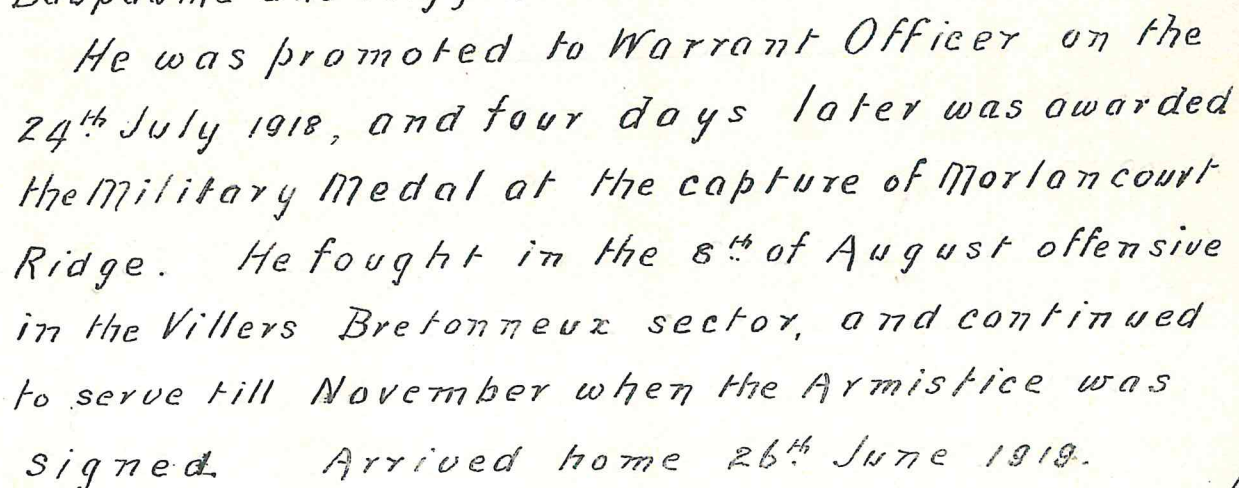 He was promoted to Warrant Officer on the
24th July 1918, and four days later was awarded
the Military Medal at the capture of Morlancourt
Ridge. He fought in the 8th of August offensive
in the Villers Bretonneux sector, and continued
to serve till November when the Armistice was
signed. Arrived home 26th June 1919.